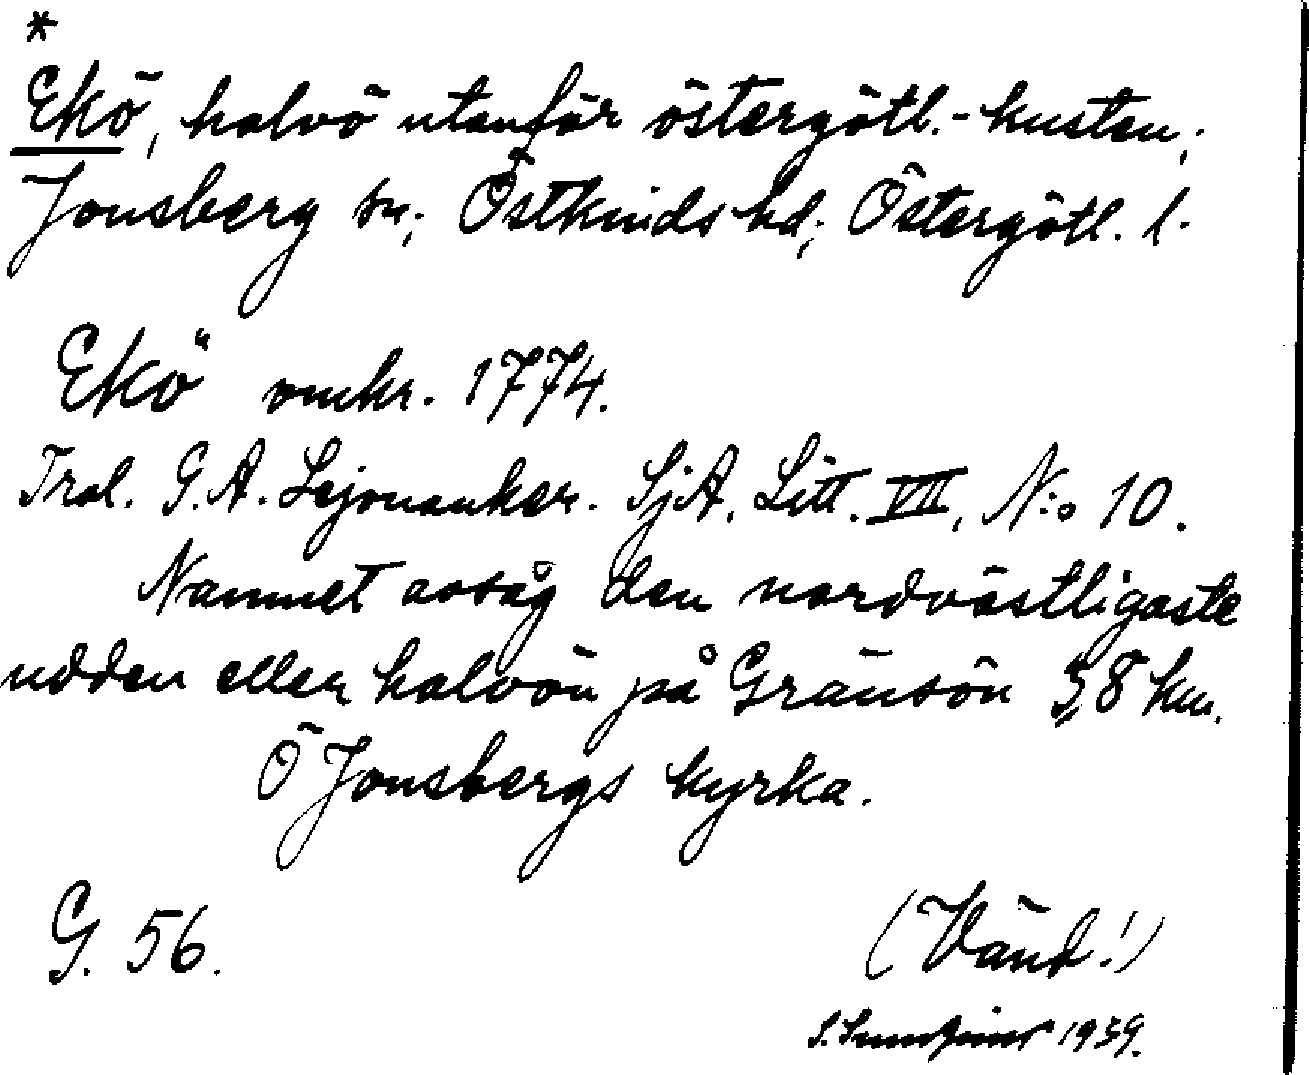 *
Ekö, halvö utanför östergötl.-kusten;
Jonsberg sn; Östkinds hd; Östergötl. l.
Ekö omkr. 1774.
Tral. G. A. Lejonanker. SjA, Litt. VII, N:o 10.
Namnet avsåg den nordvästligaste
udden eller halvön på Gränsön 3,8 km.
Ö Jonsbergs kyrka.
G. 56.
(Vänd!)
S. 1939.